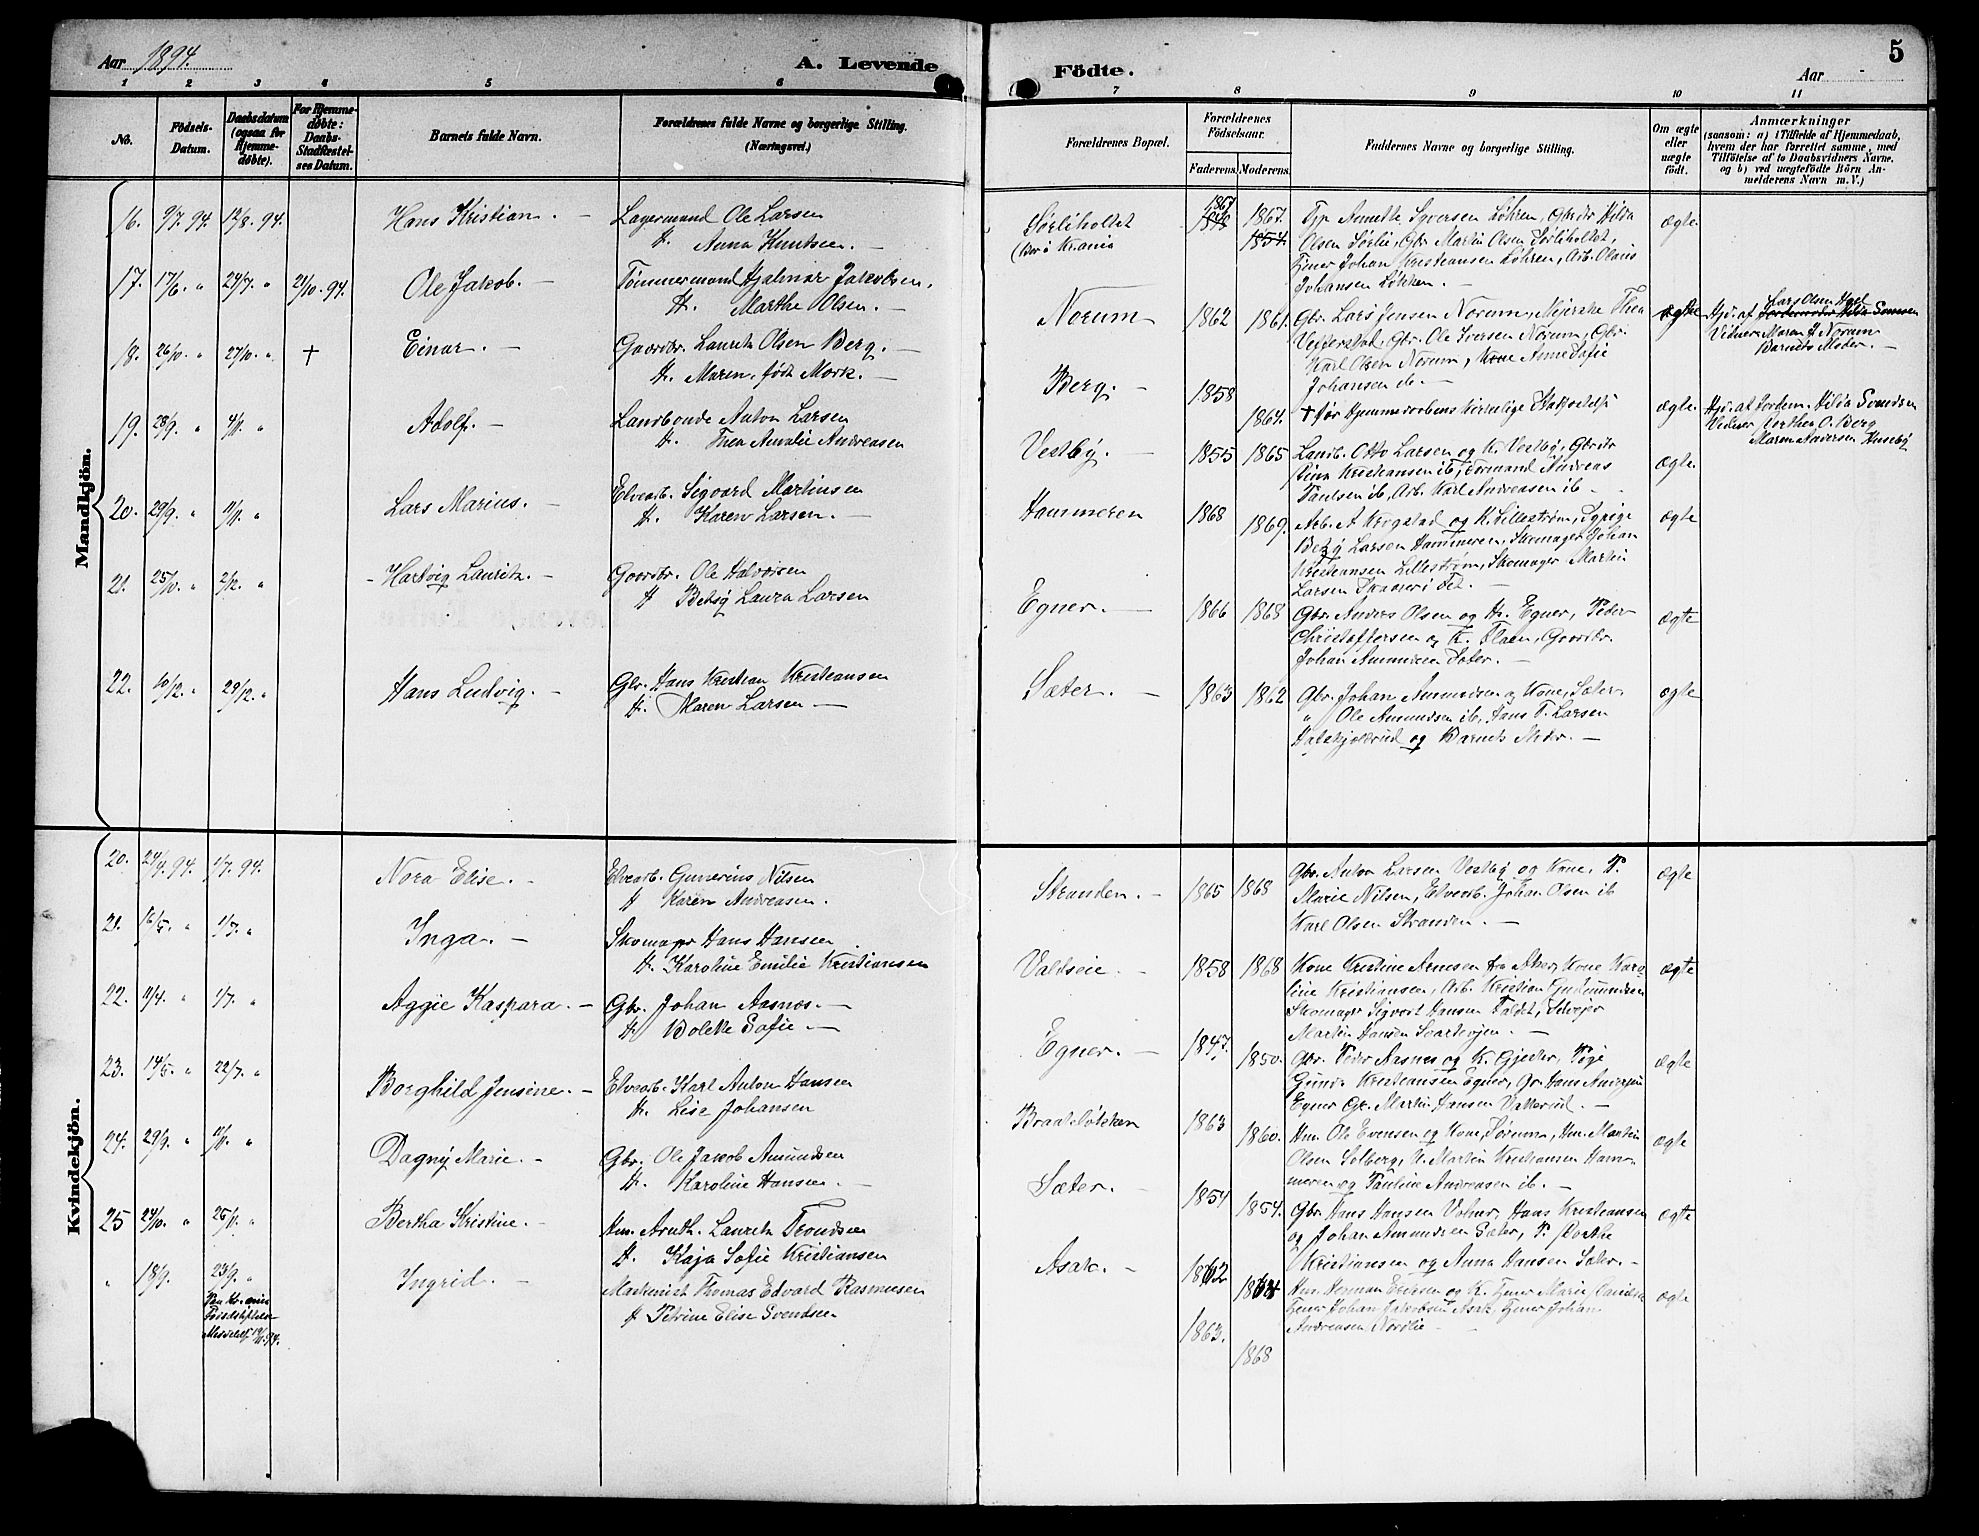 Aar 1894.
A. Levende
Födte.
Aar
5
1 2 3 4 5 6 7 8 9 10 11
No.
Födsels-
Datum.
Daabsdatum
(ogsaa for
Hjemme-
døbte).
For Hjemme-
døbte:
Daabs-
Stadfæstel-
ses Datum.
Barnets fulde Navn.
Forældrenes fulde Navne og borgerlige Stilling.
(Næringsvei.)
Forældrenes Bopæl.
Forældrenes
Födselsaar.
Faderens. Moderens.
Faddernes Navne og borgerlige Stilling.
Om ægte
eller
uægte
født.
Anmærkninger
(saasom: a) i Tilfælde af Hjemmedaab,
hvem der har forrettet samme, med
Tilföielse af to Daabsvidners Navne.
og b) ved uægtefödte Börn An-
melderens Navn m. V.)
Mandkjön.
16. 9/7. 94. 12/8. 94. Hans Kristian. —
Lagermand Ole Larsen
H. Anna Knutsen. —
Sørliholtet
(Bor i Krania
1867
1867.
1854.
Olsen Sørlie, Gbr. Martin Olsen Sørliholtet,
Tjener Johan Kristiansen Løhren, Arb. Olaus
Johansen Løkken. —
ægte.
17. 17/6. „ 24/7 „ 21/10. 94. Ole Jakob. —
Tømmermand Hjalmar Jakobsen,
H. Marthe Olsen. —
Norum
1862 1861.
Gbr. Lars Jensen Norum, Meierske Thea
Gbr. Ole Iversen Norum, Gbr.
Karl Olsen Norum, Kone Anne Sofie
Johansen ib. —
ægte
Lars Olsen
Hjd. af Jordemoder Hilda Svensen
Vidner: Maren J. Norum
Barnets Moder. —
18. 26/10 „ 27/10. „ † Einar. —
Gaardbr. Lauritz Olsen Berg. —
H. Maren, født Mork. —
Berg. —
1858
1864.
† før Hjemmedaabens kirkelige Stadfæstelse
ægte.
Hjd. af Jordem. Hilda Svendsen
Vidner Berthea O. Berg
Maren Andersen Huseby
19. 28/9. „ 4/11. „ Adolf. —
Landbonde Anton Larsen
H. Thea Amalie Andreasen
Vestby. —
1855 1865
Landb. Otto Larsen og K. Vestby, Gbrdtr
Kristiansen ib, Formand Andreas
Paulsen ib, Arb. Karl Andreasen ib —
ægte.
20. 29/9. „ 11/11. „ Lars Marius. —
Elvearb. Sigvard Martinsen
H. Karen Larsen. —
Hammeren
1868 1869.
Arb. A Krogstad og K. Lillestrøm, Sypige
Betzy Larsen Hammeren, Skomager Johan
Kristiansen Lillestrøm, Skomager Martin
Larsen i Fet. —
ægte
21. 25/10. „ 2/12. „ Hartvig Lauritz. —
Gaardbr. Ole Halvorsen
H Betsy Laura Larsen
Egner. —
1866 1868
Gbr. Anders Olsen og H. Egner, Peder
Christoffersen og K. Flaen, Gaardbr.
Johan Amundsen Sæter. —
ægte
22. 10/12. „ 29/12. „ Hans Ludvig. —
Gbr. Hans Kristian Kristiansen
H. Maren Larsen —
Sæter. —
1863 1862
Gbr. Johan Amundsen og Kone, Sæter.
„ Ole Amundsen ib, Hans T. Larsen
og Barnets Moder. —
ægte
Kvindekjön.
20. 24/4. 94. 1/7. 94. Nora Elise. —
Elvearb. Gunerius Nilsen
H Karen Andreasen.
Stranden. —
1865 1868
Gbr. Anton Larsen Vestby og Kone, P.
Marie Nilsen, Elvearb. Johan Olsen ib
Karl Olsen Stranden. —
ægte
21. 16/5. „ 1/7. „ Inga. —
Skomager Hans Hansen
H. Karoline Emilie Kristiansen
Valdseie. —
1858 1868
Kone Kristine Arnesen fra Aker, Kone Karo-
line Kristiansen, Arb. Kristian Gudmundsen
Skomager Sigvart Hansen Faldet, Selveier
Martin Hansen Svartvjen. —
ægte
22. 11/4. „ 1/7. „ Aggie Kaspara. —
Gbr. Johan Aasnæs. —
H. Bolette Sofie. —
Egner. —
1847. 1850.
Gbr. Peder Aasnes og K. Gjester, Pige
Gunda Kristiansen Egner, Gr. Hans Andersen
Egner Gr. Martin Hansen Vatterud. —
ægte
23. 14/5. „ 22/7. „ Borghild Jensine. —
Elvearb. Karl Anton Hansen
H. Lise Johansen
Braateløkken
1863 1860.
Hm. Ole Evensen og Kone, Sørum, Hm. Martin
Olsen Solberg, U. Martin Kristiansen Ham-
meren og Pauline Andreasen ib. —
ægte
24. 29/9. „ 11/11. „ Dagny Marie. —
Gbr. Ole Jakob Amundsen
H. Karoline Hansen. —
Sæter. —
1854 1854.
Gbr. Hans Hansen Valner, Hans Kristiansen
og Johan Amundsen Sæter, P. Marthe
Kristiansen og Anna Hansen Sæter. —
ægte
25 24/10. „ 25/11. „ Bertha Kristine. —
Hm. Lauritz Trondsen
H. Kaja Sofie Kristiansen
Asak. —
1862 1864
Hm. Herman Eriksen og K. Tjener Marie
Tjener Johan Jakobsen Asak, Tjener Johan
Andreasen Nordlie —
ægte
„ 18/9. 23/9. „
Ingrid. —
Maskinist Thomas Edvard Rasmusen
H Petrine Elise Svendsen
1863.
1868